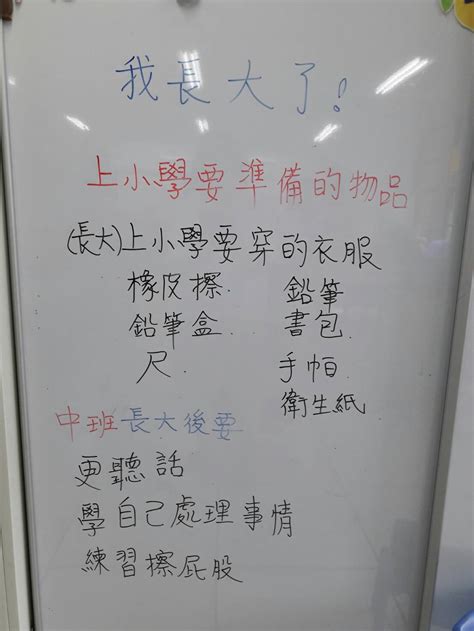 我長大了!
上小學要準備的物品
(長大)上小學要穿的衣服
橡皮擦. 鉛筆
鉛筆盒. 書包.
尺. 手帕.
衛生紙
中班長大後要
更聽話
學自己處理事情
練習擦屁股